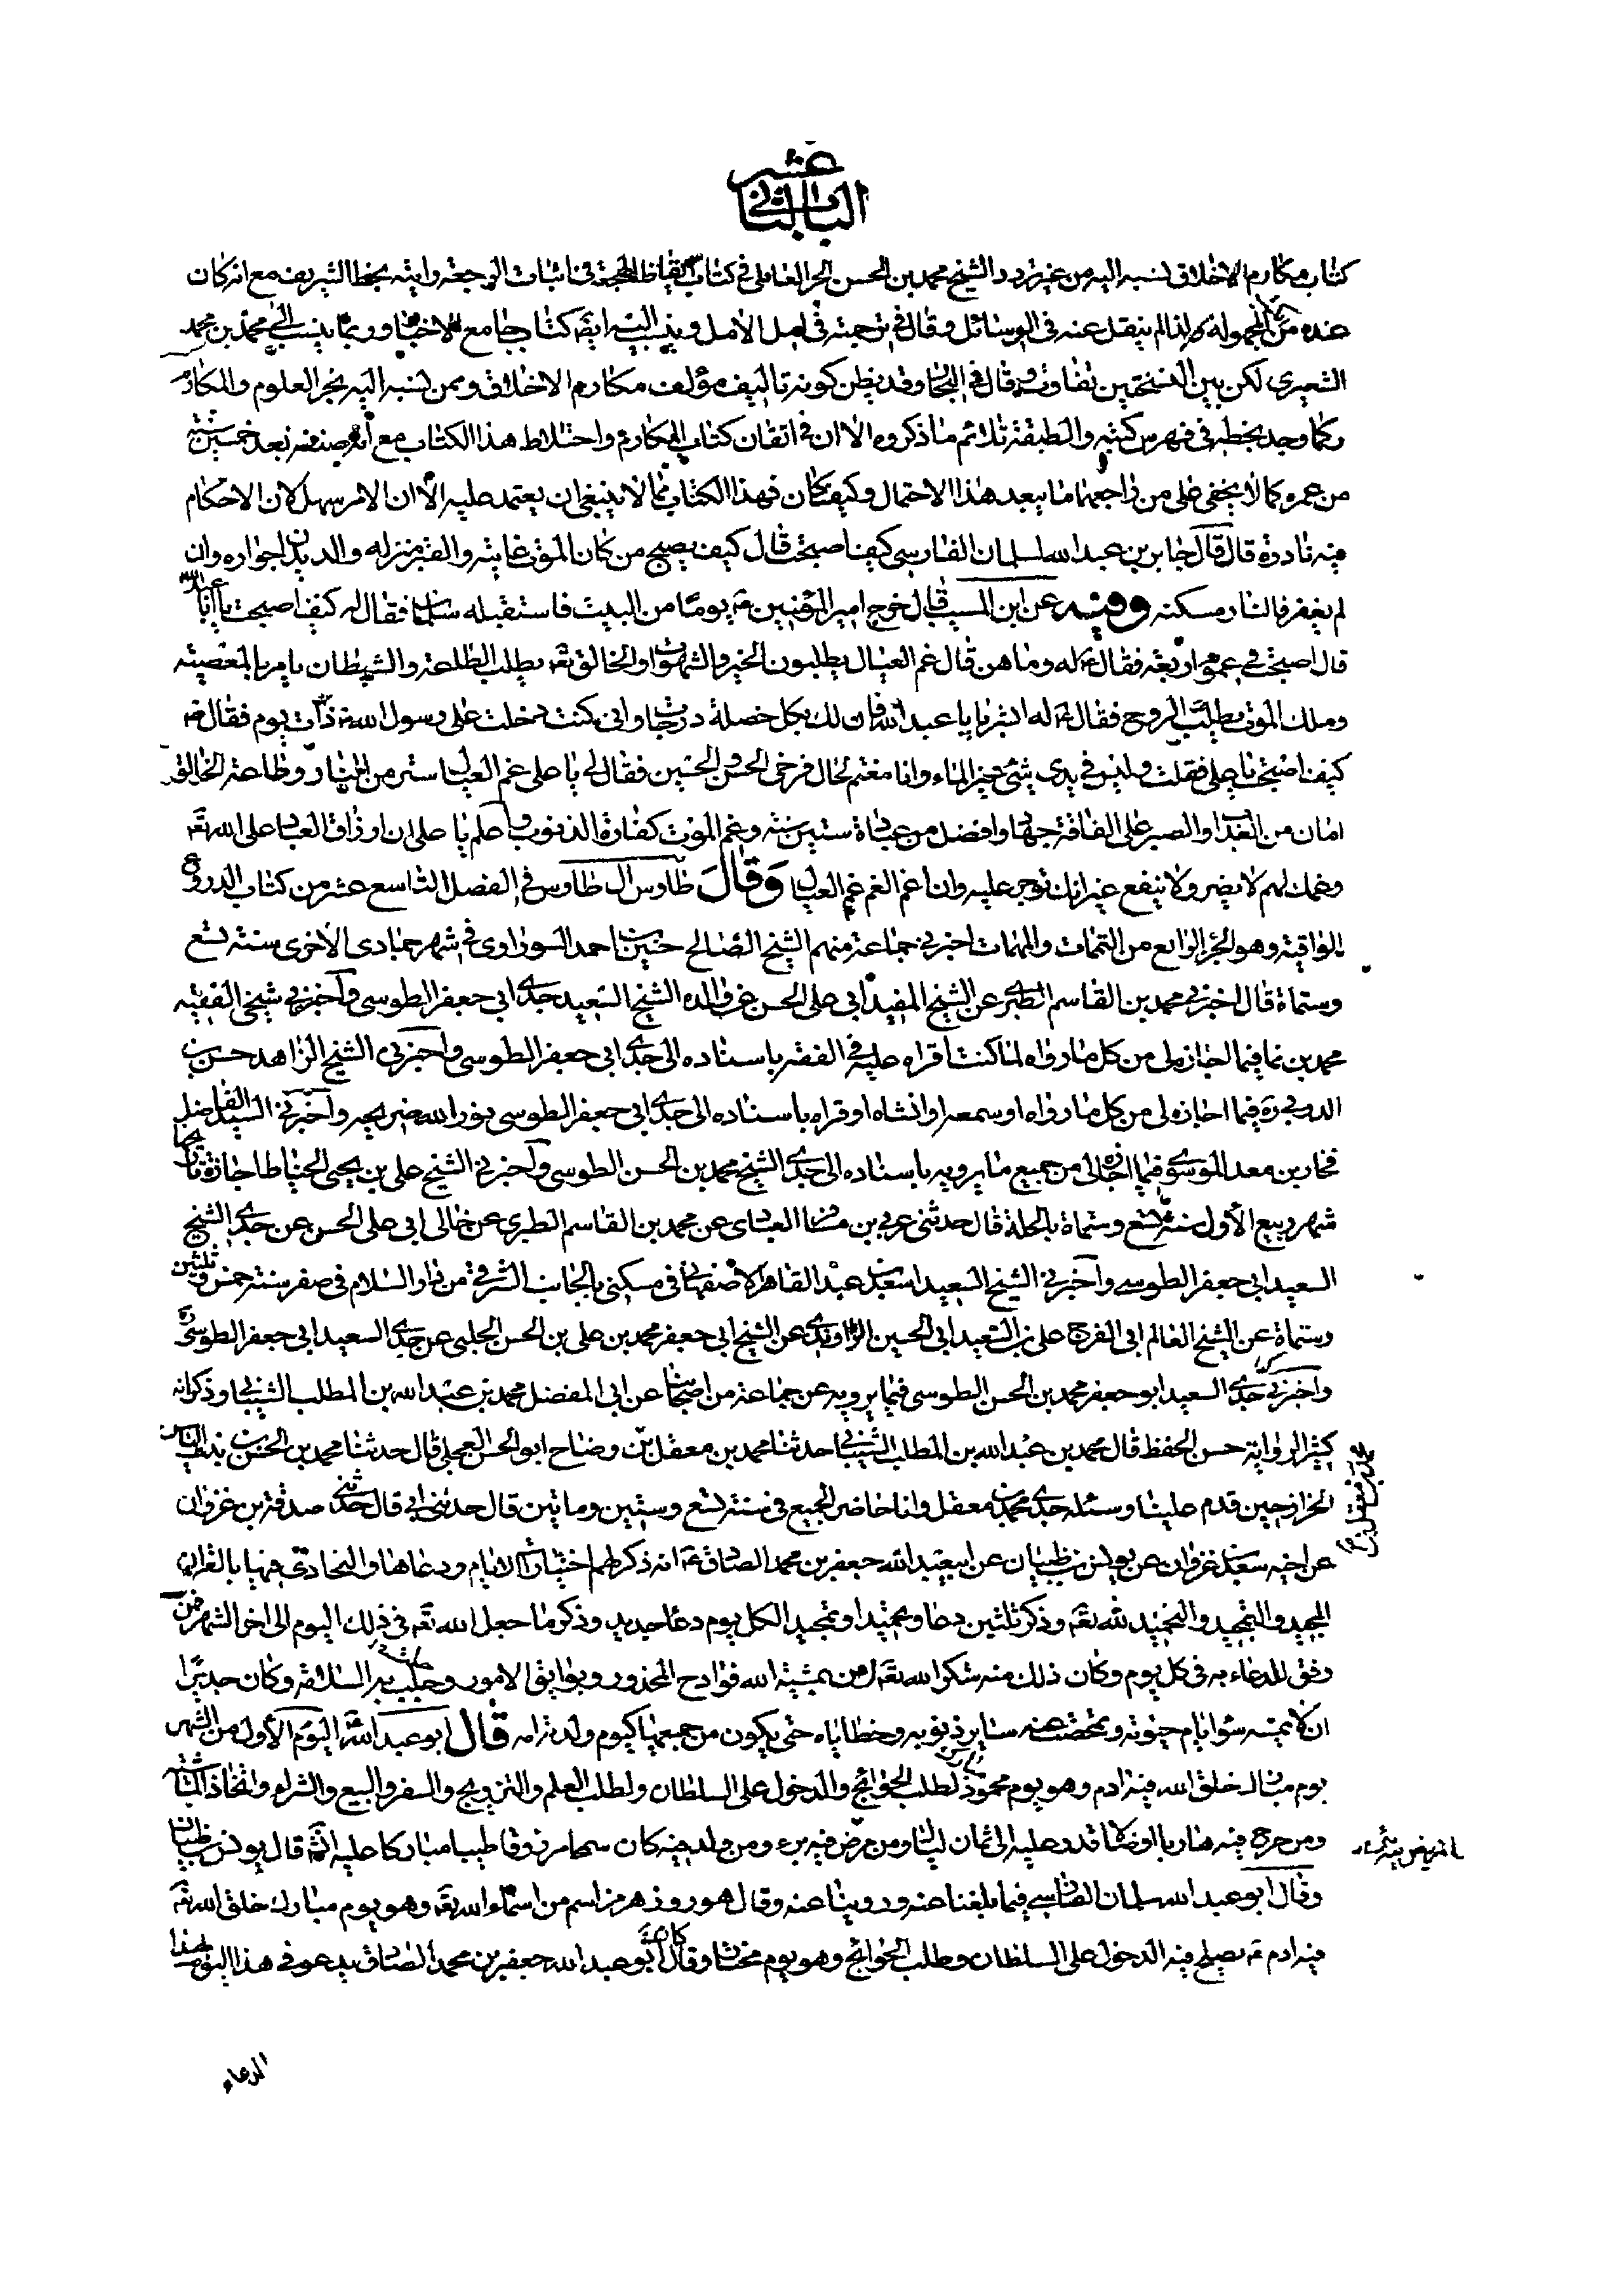 الباب الثاني عشر
كتاب مكارم الاخلاق نسبه اليه من غير تردد الشيخ محمد بن الحسن الحر العاملي في كتاب ايقاظ الهجعة في اثبات الرجعة رايته بخطه الشريف مع انه كان
عنده من الكتب المجهولة ولذا لم ينقل عنه في الوسائل وقال في ترجمته في امل الامل وينسب اليه ايضا كتاب جامع الاخبار وربما ينسب الى محمد بن محمد
الشعيري لكن بين النسختين تفاوت وقال في البحار وقد يظن كونه تاليف مؤلف مكارم الاخلاق وممن نسبه اليه بحر العلوم والمكارم
كما وجد بخطه في فهرس كتبه والطبقة تلائم ما ذكروه الا ان في اتقان كتاب المكارم واختلاط هذا الكتاب مع انه صنفه بعد خمسين سنة
من عمره كما لا يخفى على من راجعهما ما يبعد هذا الاحتمال وكيف كان فهذا الكتاب مما لا ينبغي ان يعتمد عليه الا ان الامر سهل لان الاحكام
فيه نادرة قال قال جابر بن عبد الله لسلمان الفارسي كيف اصبحت قال كيف يصبح من كان الموت غايته والقبر منزله والديدان جواره وان
لم يغفر فالنار مسكنه وفيه عن ابن المسيب قال خرج امير المؤمنين ع يوما من البيت فاستقبله سلمان فقال له كيف اصبحت يا ابا عبد الله
قال اصبحت في غموم اربعة فقال ع له وما هن قال غم العيال يطلبون الخبز والشهوات والخالق تع يطلب الطاعة والشيطان يامر بالمعصية
وملك الموت يطلب الروح فقال ع له ابشر يا با عبد الله فان لك بكل خصلة درجات واني كنت دخلت على رسول الله ص ذات يوم فقال ص
كيف اصبحت يا علي فقلت وليس في يدي شئ غير الماء وانا مغتم لحال فرخي الحسن والحسين فقال لي يا علي غم العيال ستر من النار وطاعة الخالق
امان من العذاب والصبر على الفاقة جهاد وافضل من عبادة ستين سنة وغم الموت كفارة الذنوب واعلم يا علي ان ارزاق العباد على الله تع
وغمك لهم لا يضر ولا ينفع غير انك توجر عليه وان اغم الغم غم العيال وقال طاوس ال طاوس في الفصل التاسع عشر من كتاب الدروع
الواقية وهو الجزء الرابع من التتمات والمهمات اخبرني جماعة منهم الشيخ الصالح حسين بن احمد السوراوي في شهر جمادى الاخرى سنة تسع
وستماة قال اخبرني محمد بن القاسم الطبري عن الشيخ المفيد ابي علي الحسن عن والده الشيخ السعيد جدي ابي جعفر الطوسي واخبرني شيخي الفقيه
محمد بن نما فيما اجازه لي من كل ما رواه لما كنت اقراه عليه في الفقه باسناده الى جدي ابي جعفر الطوسي واخبرني الشيخ الزاهد حسن بن
الدربي ره فيما اجازه لي من كل ما رواه او سمعه او انشاه او قراه باسناده الى جدي ابي جعفر الطوسي نور الله ضريحه واخبرني السيد الفاضل
فخار بن معد الموسوي فيما اجازه لي من جميع ما يرويه باسناده الى جدي الشيخ محمد بن الحسن الطوسي واخبرني الشيخ علي بن يحيى الحناط اجازة تاريخها
شهر ربيع الأول سنة تسع وستماة بالحلة قال حدثني عربي بن مسافر العبادي عن محمد بن القاسم الطبري عن خالي ابي علي الحسن عن جدي الشيخ
السعيد ابي جعفر الطوسي واخبرني الشيخ السعيد اسعد بن عبد القاهر الاصفهاني في مسكني بالجانب الشرقي من دار السلام في صفر سنة خمس وثلثين
وستماة عن الشيخ العالم ابي الفرج علي بن السعيد ابي الحسين الراوندي عن الشيخ ابي جعفر محمد بن علي بن الحسن الحلبي عن جدي السعيد ابي جعفر الطوسي ره
واخبرني جدي السعيد ابو جعفر محمد بن الحسن الطوسي فيما يرويه عن جماعة من اصحابنا عن ابي المفضل محمد بن عبد الله بن المطلب الشيباني وذكر انه
كثير الرواية حسن الحفظ قال محمد بن عبد الله بن المطلب الشيباني حدثنا محمد بن معقل بن وضاح ابو الحسن العجلي قال حدثنا محمد بن الحسن بن بنت الياس
الخزاز حين قدم علينا وسئله جدي محمد بن معقل وانا حاضر الجميع في سنة تسع وستين وماتين قال حدثني ابي قال حدثني صدقة بن غزوان
عن اخيه سعيد بن غزوان عن يونس بن ظبيان عن ابي عبد الله جعفر بن محمد الصادق ع انه ذكر لهم اختيارات الايام ودعاها والتحادي فيها بالقران
المجيد والتمجيد والتحميد لله تع وذكر ثلثين دعا وتحميدا وتمجيدا لكل يوم دعا جديد وذكر ما جعل الله تع في ذلك اليوم الى اخر الشهر فمن
وفق للدعاء به في كل يوم وكان ذلك منه شكرا لله تع امن بمشية الله فوادح المحذور وبوايق الامور وجلب به السلامة وكان جديرا
ان لا يمسه سوء ايام حيوته وتمحصت عنه ساير ذنوبه وخطاياه حتى يكون من جميعها كيوم ولدته امه قال ابو عبد الله ع اليوم الأول من الشهر
يوم مبارك خلق الله فيه ادم وهو يوم محمود لطلب الحوائج والدخول على السلطان ولطلب العلم والتزويج والسفر والبيع والشراء واتخاذ الماشية
ومن خرج فيه هاربا او ضالا قدر عليه الى ثمان ليال ومن مرض فيه برء ومن ولد فيه كان سمحا مرزوقا طيبا مباركا عليه انش قال يونس بن ظبيان
وقال ابو عبد الله سلمان الفارسي فيما بلغنا عنه وروينا عنه وقال هو روز هرمز اسم من اسماء الله تع وهو يوم مبارك خلق الله تع
فيه ادم ع يصلح فيه الدخول على السلطان وطلب الحوائج وهو يوم مختار وقال كان ابو عبد الله جعفر بن محمد الصادق يدعو في هذا اليوم بهذا
الدعاء